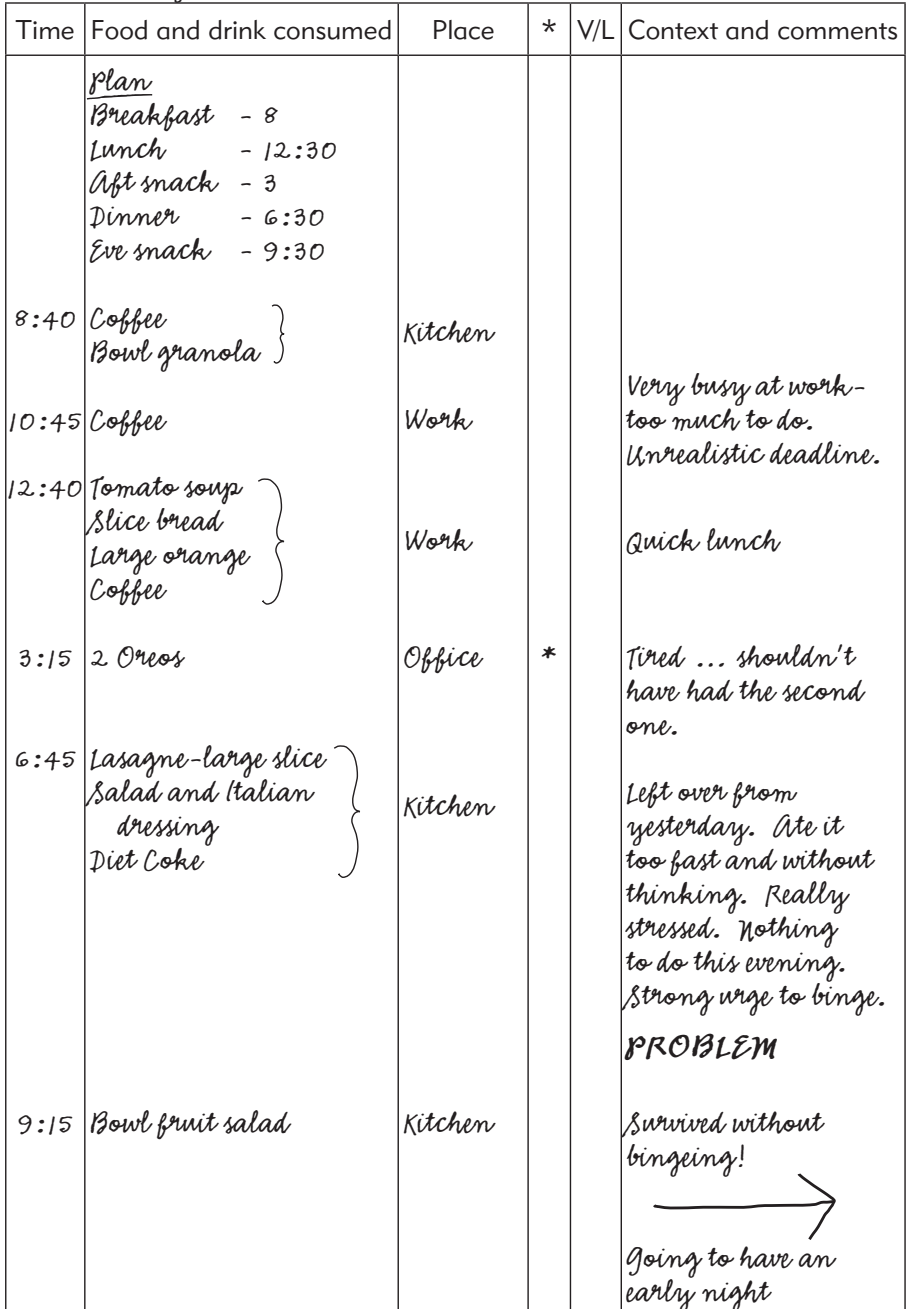 Time Food and drink consumed Place * V/L Context and comments
Plan
Breakfast - 8
Lunch - 12:30
Aft snack - 3
Dinner - 6:30
Eve snack - 9:30
8:40 Coffee
Bowl granola
Kitchen
10:45 Coffee
Work
Very busy at work-
too much to do.
Unrealistic deadline.
12:40 Tomato soup
Slice bread
Large orange
Coffee
Work
Quick lunch
3:15 2 Oreos
Office
*
Tired ... shouldn't
have had the second
one.
6:45 Lasagne-large slice
Salad and Italian
dressing
Diet Coke
Kitchen
Left over from
yesterday. Ate it
too fast and without
thinking. Really
stressed. Nothing
to do this evening.
Strong urge to binge.
PROBLEM
9:15 Bowl fruit salad
Kitchen
Survived without
bingeing!
Going to have an
early night